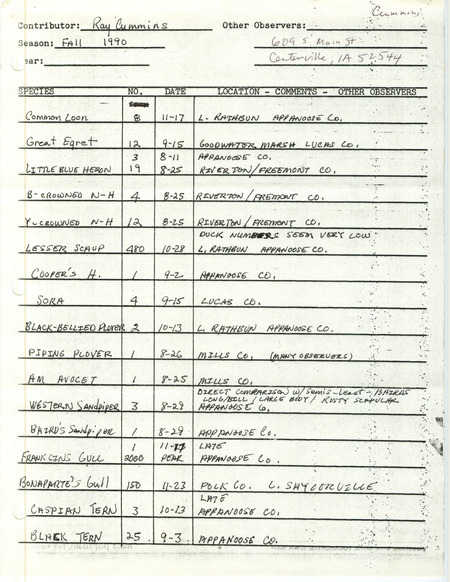 Cummins
Contributor: Ray Cummins Other Observers:
Season: Fall 1990 609 S. Main St
Year: Centerville, IA 52544
SPECIES NO. DATE LOCATION - COMMENTS - OTHER OBSERVERS
Common Loon 8 11-17 L. RATHBUN APPANOOSE CO.
Great Egret 12 9-15 GOODWATER MARSH LUCAS CO.
3 8-11 APPANOOSE CO.
LITTLE BLUE HERON 19 8-25 RIVERTON/FREEMONT CO.
B-CROWNED N-H 4 8-25 RIVERTON/FREMONT CO.
Y-CROWNED N-H 12 8-25 RIVERTON/FREMONT CO.
DUCK NUMBERS SEEM VERY LOW
LESSER SCAUP 480 10-28 L. RATHBUN APPANOOSE CO.
COOPER'S H. 1 9-2 APPANOOSE CO.
SORA 4 9-15 LUCAS CO.
BLACK-BELLIED PLOVER 2 10-13 L. RATHBUN APPANOOSE CO.
PIPING PLOVER 1 8-26 MILLS CO. (MANY OBSERVERS)
AM AVOCET 1 8-25 MILLS CO.
DIRECT COMPARISON W/ Semis-Least-BAIRDS
LONG BILL / LARGE BODY / RUSTY SCAPULAR
WESTERN SANDPIPER 3 8-29 APPANOOSE CO.
BAIRD'S SANDPIPER 1 8-29 APPANOOSE CO.
1 11-17 LATE
FRANKLINS GULL 2000 PEAK APPANOOSE CO.
BONAPARTE'S Gull 150 11-23 POLK CO. L. SAYLORVILLE
LATE
CASPIAN TERN 3 10-13 APPANOOSE CO.
BLACK TERN 25 9-3 APPANOOSE CO.